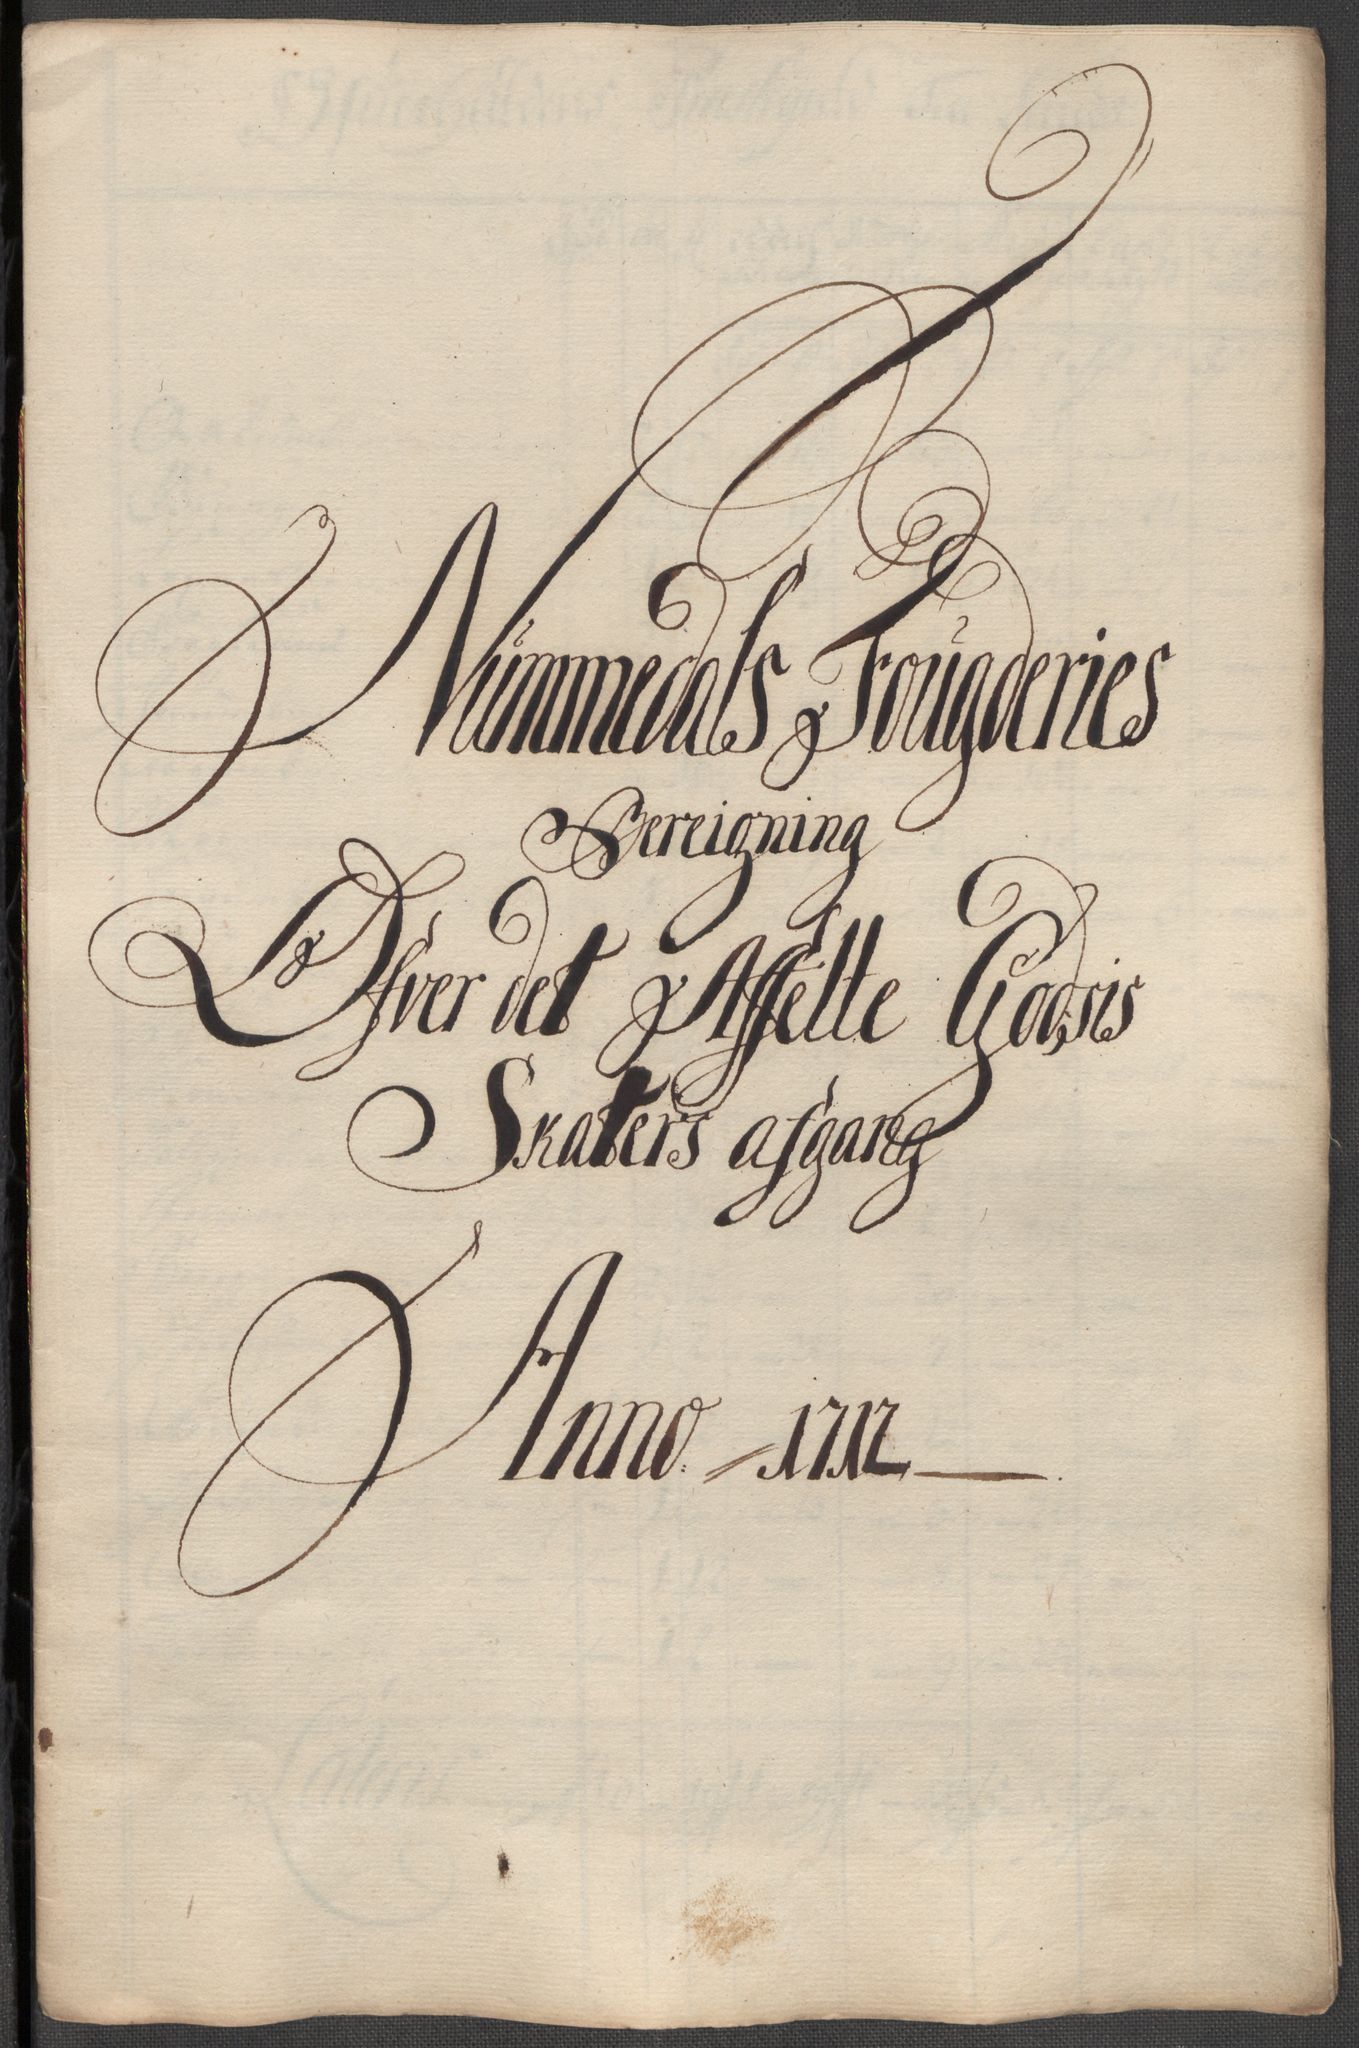 Nummedals Fougderies
Bereigning
Ofver det Affelte Godsis
Skatters afgang
Anno 1712